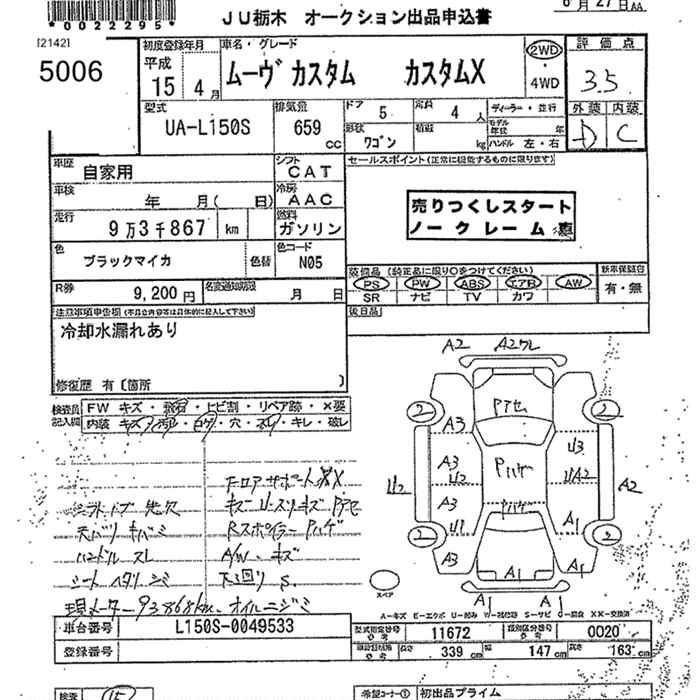 *0022295*
JU栃木 オークション出品申込書
[2142]
5006
初度登録年月
平成
15 4月
車名・グレード
ムーヴ カスタム カスタムX
2WD
4WD
評価点
3.5
外装 内装
D C
型式
UA-L150S
排気量
659 cc
ドア 5
定員 4 人
形状 ワゴン
積載 kg
ディーラー・並行
モデル年式 年
ハンドル 左・右
車歴
自家用
シフト
CAT
車検
年 月( 日)
冷房
AAC
走行
9万3千867 km
燃料
ガソリン
色
ブラックマイカ
色替
色コード
N05
R券
9,200円
名変通知期限
月 日
セールスポイント(正常に機能するものに限ります)
売りつくしスタート
ノークレーム
装備品(純正品に限り○をつけてください)
PS PW ABS エアB AW
SR ナビ TV カワ
新車保証書
有・無
後日品
注意事項申告欄(不具合内容等は具体的に記入して下さい)
冷却水漏れあり
修復歴 有〔箇所 〕
検査員
記入欄
FW キズ・飛石・トビ割・リペア跡・X要
内装 キズ・汚れ・コゲ・穴・スレ・キレ・破レ
フロアサポートXX
キズ
天バリ キバミ
Rスポイラー Pハゲ
ハンドル スレ
A/W・キズ
シート ヘタリ シミ
下廻り S.
現メーター 93868km. オイルニジミ
A2 A2ワレ
Pアセ
2 2
A3
A3 U3
Pハゲ
U2 A3 UA2 A2
A2
Pハゲ
U1 A1
2 2
A3
A1 A1
A1 A1
スペア
A－キズ E－エクボ U－凹み W－波凹跡 S－サビ C－腐食 XX－交換済
車台番号
L150S-0049533
登録番号
型式指定番号
参考
11672
類別区分番号
参考
0020
参考
長さ 339 cm
幅 147 cm
高さ 163 cm
検査
15
希望コーナー① 初出品プライム